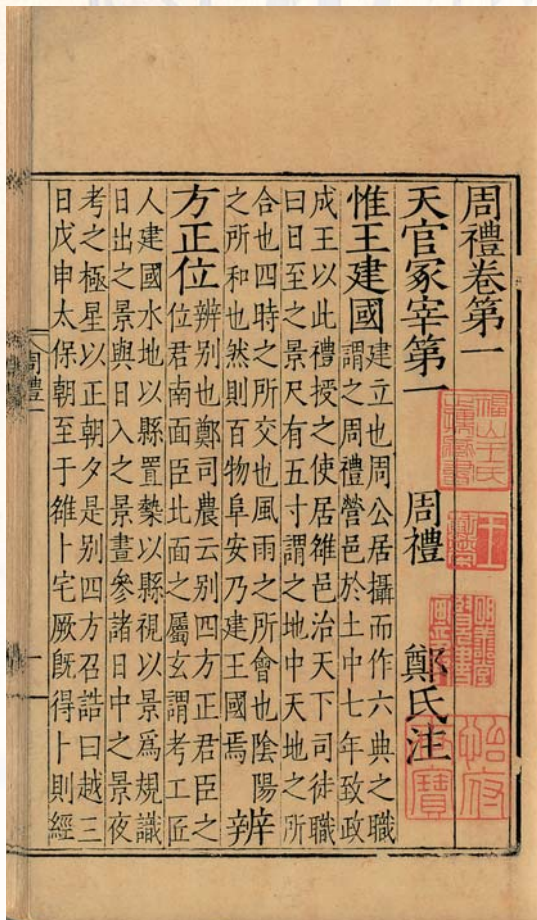 周禮卷第一
天官冢宰第一 周禮 鄭氏注
惟王建國
建立也周公居攝而作六典之職
謂之周禮營邑於土中七年致政
成王以此禮授之使居雒邑治天下司徒職
曰日至之景尺有五寸謂之地中天地之所
合也四時之所交也風雨之所會也陰陽
之所和也然則百物阜安乃建王國焉
辨
方正位
辨別也鄭司農云別四方正君臣之
位君南面臣北面之屬玄謂考工匠
人建國水地以縣置槷以縣視以景爲規識
日出之景與日入之景晝參諸日中之景夜
考之極星以正朝夕是別四方召誥曰越三
日戊申太保朝至于雒卜宅厥既得卜則經
周禮一
一
福山王氏正孺藏書
王懿榮
明善堂覽書畫印記
怡府世寶